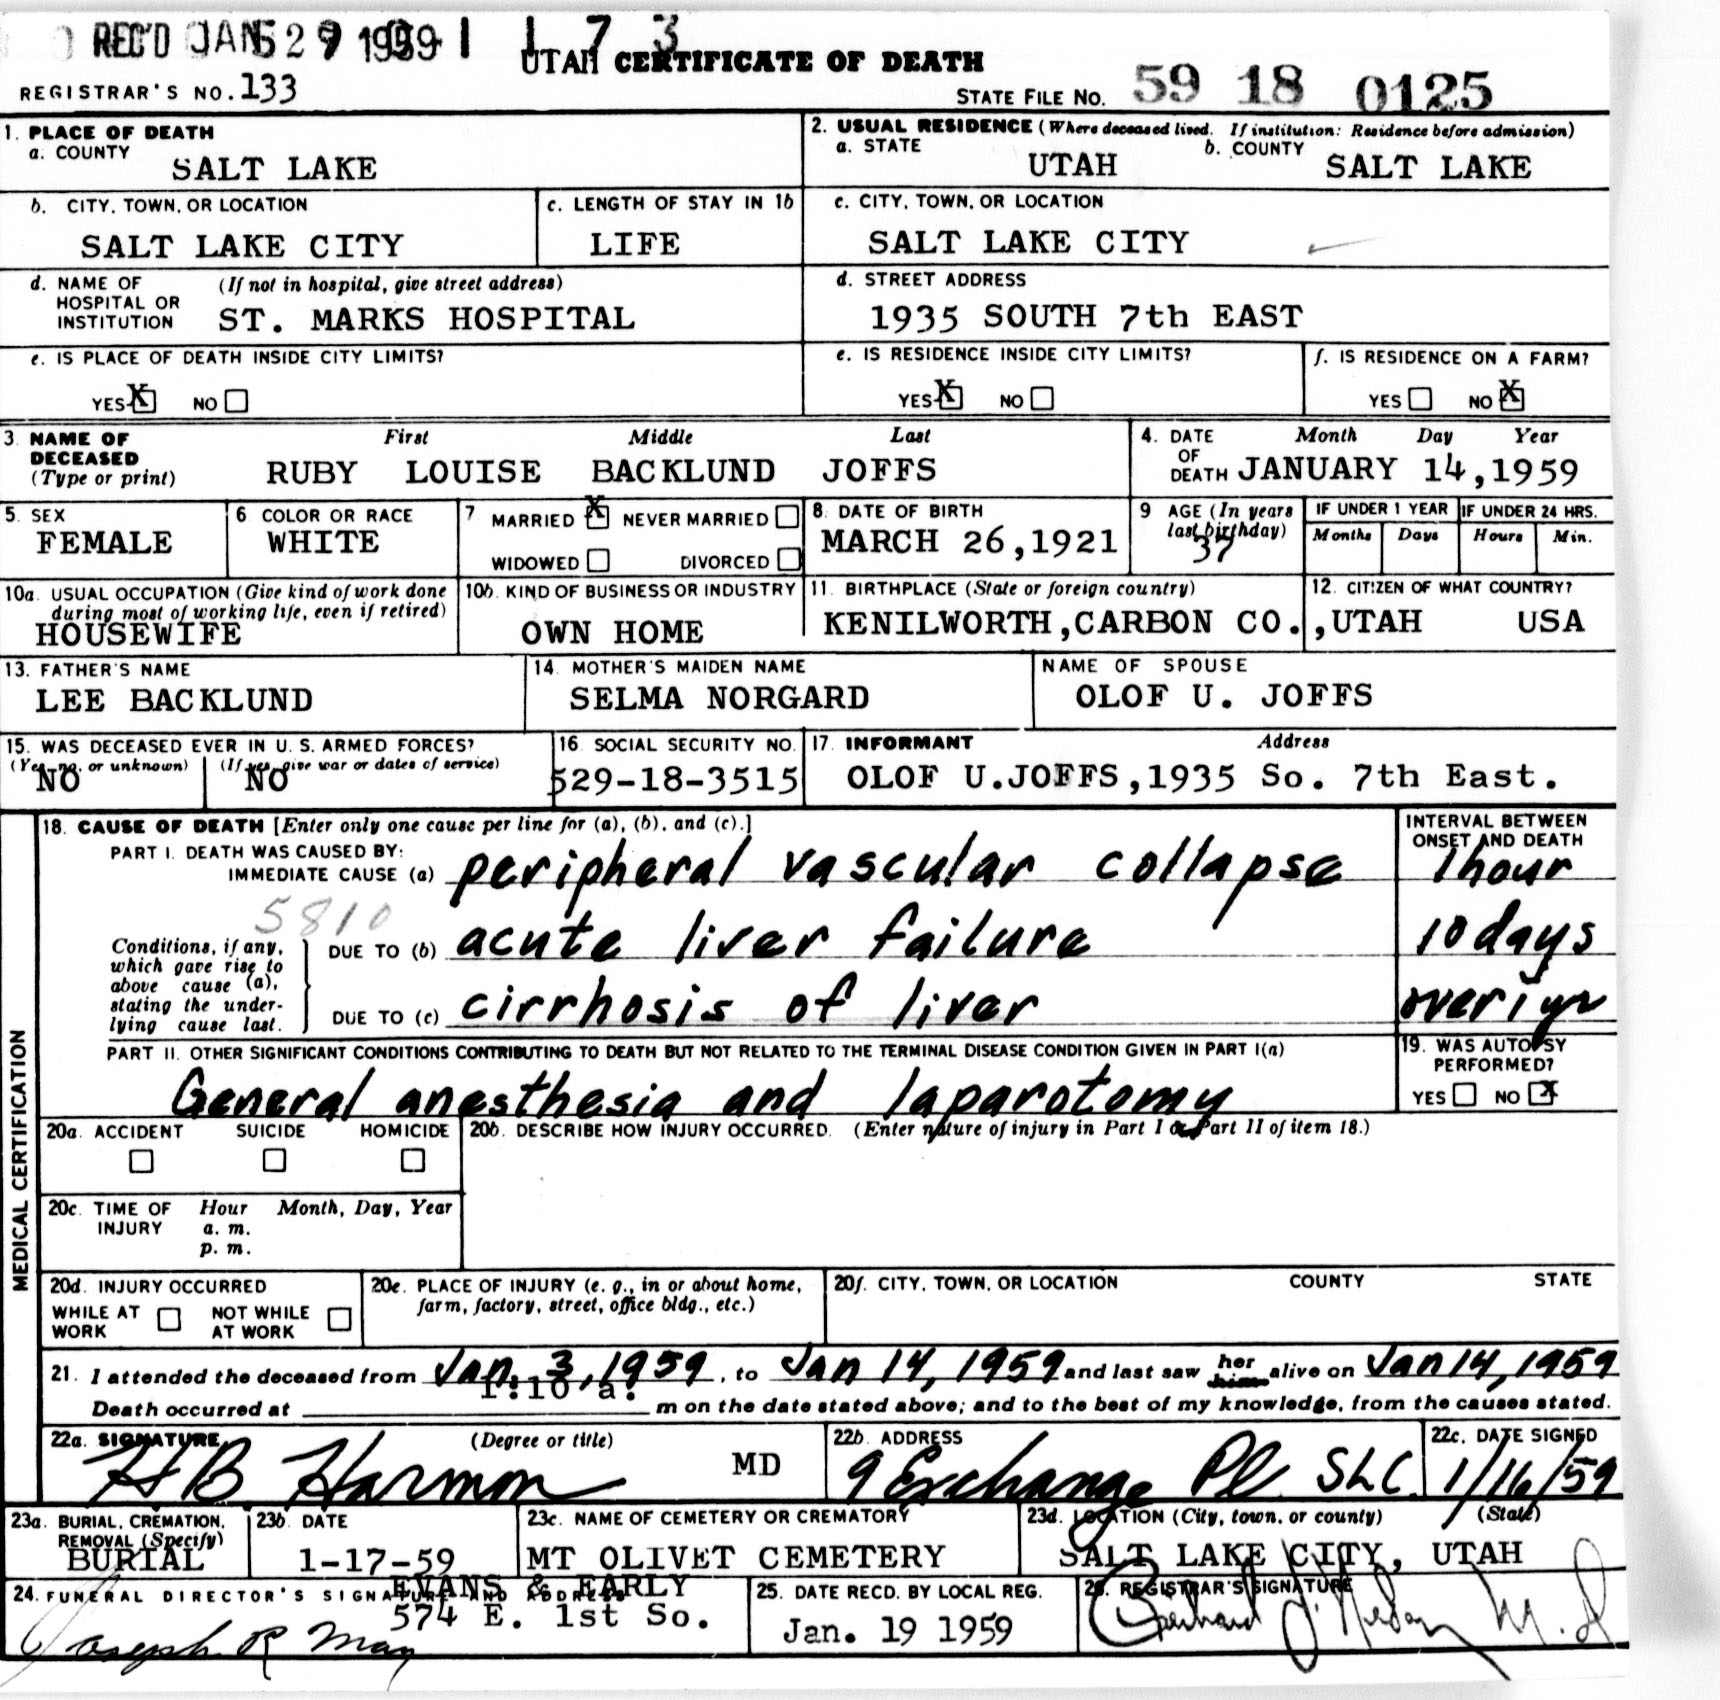 REC'D JAN 29 1959 1 1 7 3
UTAH CERTIFICATE OF DEATH
REGISTRAR'S NO. 133
STATE FILE NO. 59 18 0125
1. PLACE OF DEATH
a. COUNTY SALT LAKE
2. USUAL RESIDENCE (Where deceased lived. If institution: Residence before admission)
a. STATE UTAH b. COUNTY SALT LAKE
b. CITY, TOWN, OR LOCATION SALT LAKE CITY
c. LENGTH OF STAY IN 1b LIFE
c. CITY, TOWN, OR LOCATION SALT LAKE CITY
d. NAME OF HOSPITAL OR INSTITUTION (If not in hospital, give street address) ST. MARKS HOSPITAL
d. STREET ADDRESS 1935 SOUTH 7th EAST
e. IS PLACE OF DEATH INSIDE CITY LIMITS?
YES X NO
e. IS RESIDENCE INSIDE CITY LIMITS?
YES X NO
f. IS RESIDENCE ON A FARM?
YES NO X
3. NAME OF DECEASED (Type or print) First Middle Last
RUBY LOUISE BACKLUND JOFFS
4. DATE OF DEATH Month Day Year
JANUARY 14,1959
5. SEX FEMALE
6 COLOR OR RACE WHITE
7 MARRIED X NEVER MARRIED
WIDOWED DIVORCED
8. DATE OF BIRTH MARCH 26,1921
9 AGE (In years last birthday) 37
IF UNDER 1 YEAR Months Days
IF UNDER 24 HRS. Hours Min.
10a. USUAL OCCUPATION (Give kind of work done during most of working life, even if retired) HOUSEWIFE
10b. KIND OF BUSINESS OR INDUSTRY OWN HOME
11. BIRTHPLACE (State or foreign country) KENILWORTH,CARBON CO.,UTAH
12. CITIZEN OF WHAT COUNTRY? USA
13. FATHER'S NAME LEE BACKLUND
14. MOTHER'S MAIDEN NAME SELMA NORGARD
NAME OF SPOUSE OLOF U. JOFFS
15. WAS DECEASED EVER IN U. S. ARMED FORCES?
(Yes, no, or unknown) NO (If yes, give war or dates of service) NO
16. SOCIAL SECURITY NO. 529-18-3515
17. INFORMANT Address
OLOF U.JOFFS,1935 So. 7th East.
MEDICAL CERTIFICATION
18. CAUSE OF DEATH [Enter only one cause per line for (a), (b), and (c).]
INTERVAL BETWEEN ONSET AND DEATH
PART I. DEATH WAS CAUSED BY:
IMMEDIATE CAUSE (a) peripheral vascular collapse 1 hour
5810
Conditions, if any, which gave rise to above cause (a), stating the underlying cause last.
DUE TO (b) acute liver failure 10 days
DUE TO (c) cirrhosis of liver over 1 yr
PART II. OTHER SIGNIFICANT CONDITIONS CONTRIBUTING TO DEATH BUT NOT RELATED TO THE TERMINAL DISEASE CONDITION GIVEN IN PART I(a)
General anesthesia and laparotomy
19. WAS AUTOPSY PERFORMED?
YES NO X
20a. ACCIDENT SUICIDE HOMICIDE
20b. DESCRIBE HOW INJURY OCCURRED. (Enter nature of injury in Part I or Part II of item 18.)
20c. TIME OF INJURY Hour a. m. p. m. Month, Day, Year
20d. INJURY OCCURRED
WHILE AT WORK NOT WHILE AT WORK
20e. PLACE OF INJURY (e. g., in or about home, farm, factory, street, office bldg., etc.)
20f. CITY, TOWN, OR LOCATION COUNTY STATE
21. I attended the deceased from Jan. 3, 1959, to Jan 14, 1959 and last saw her him alive on Jan 14, 1959
Death occurred at 1:10 a. m on the date stated above; and to the best of my knowledge, from the causes stated.
22a. SIGNATURE (Degree or title)
H B Harmon MD
22b. ADDRESS 9 Exchange Pl. SLC.
22c. DATE SIGNED 1/16/59
23a. BURIAL, CREMATION, REMOVAL (Specify) BURIAL
23b. DATE 1-17-59
23c. NAME OF CEMETERY OR CREMATORY MT OLIVET CEMETERY
23d. LOCATION (City, town, or county) (State)
SALT LAKE CITY, UTAH
24. FUNERAL DIRECTOR'S SIGNATURE AND ADDRESS
EVANS & EARLY
574 E. 1st So.
Joseph R May
25. DATE RECD. BY LOCAL REG. Jan. 19 1959
26. REGISTRAR'S SIGNATURE
M.D